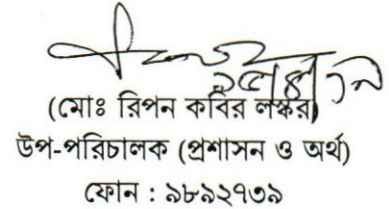 (মোঃ রিপন কবির লস্কর)
উপ-পরিচালক (প্রশাসন ও অর্থ)
ফোন : ৯৮৯২৭৩৯